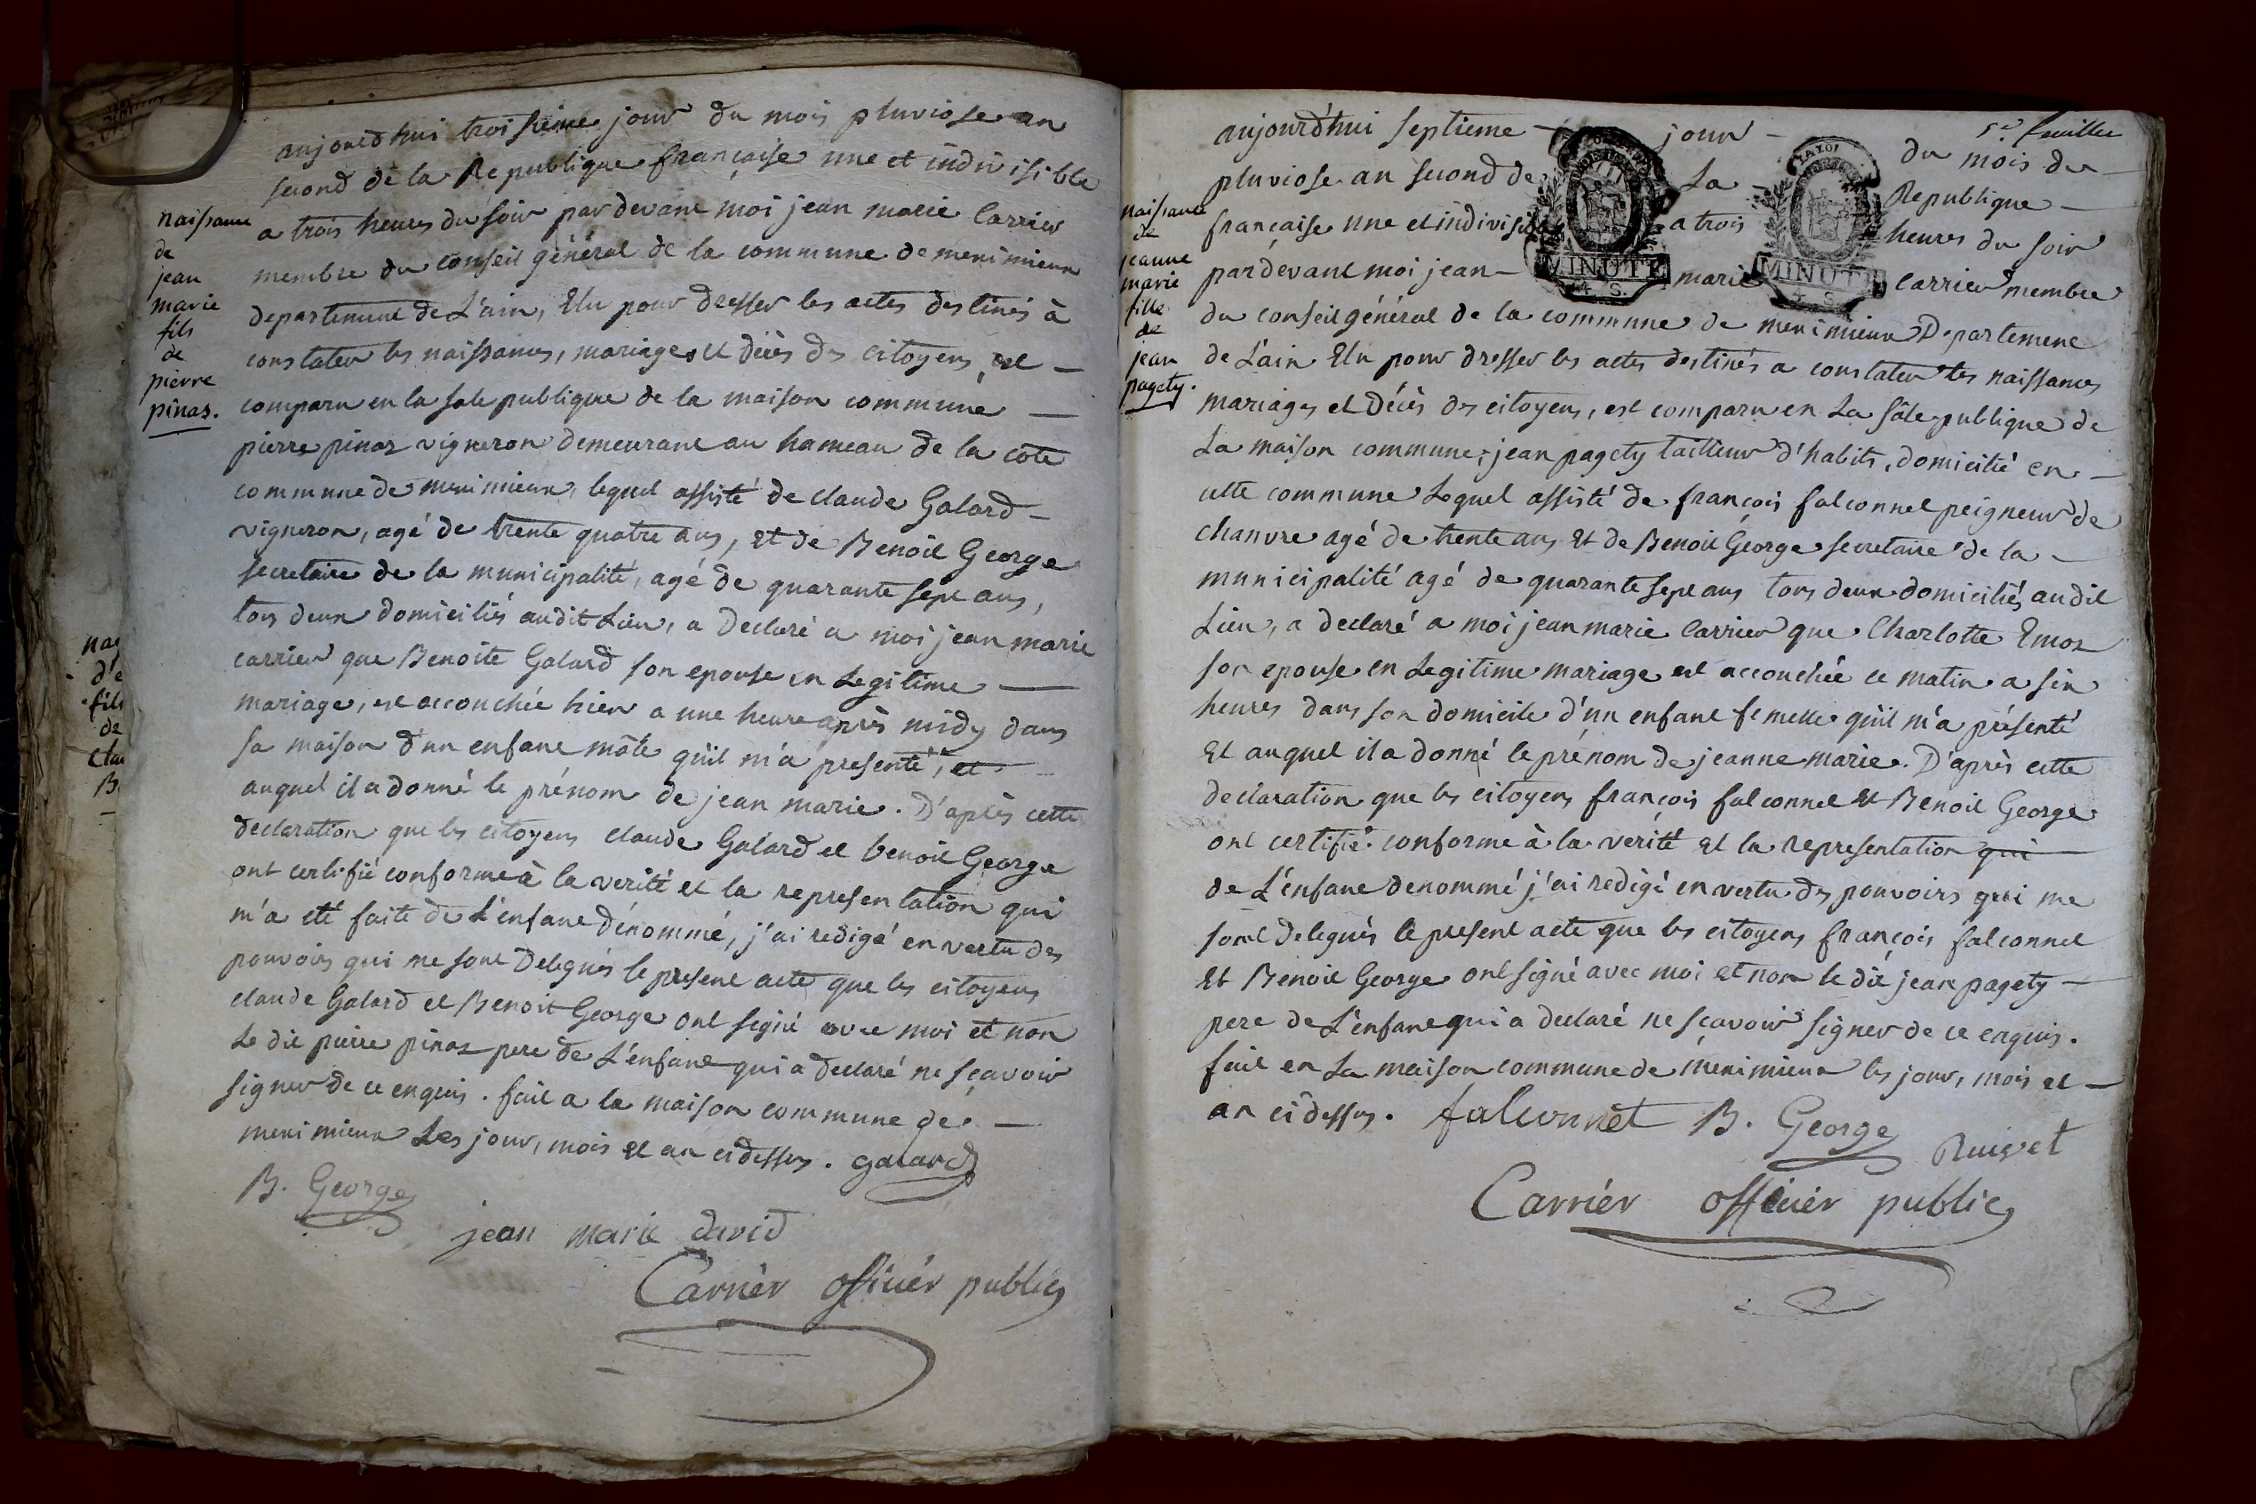 aujourdhui troisieme jour du mois pluviose an
second de la Republique française une et indivisible
a trois heures du soir par devant moi jean marie Carrier
membre du conseil général de la commune de meximieux
departement de L'ain, Elu pour dresser les actes destinés à
constater les naissances, mariages et décès des citoyens, est
comparu en la sale publique de la maison commune
pierre pinaz vigneron demeurant au hameau de la cote
commune de meximieux, lequel assisté de claude Galard
vigneron, agé de trente quatre ans, et de Benoit George
secretaire de la municipalité, agé de quarante sept ans,
tous deux domiciliés audit Lieu, a Declaré a moi jean marie
carrier que Benoite Galard son epouse en Legitime
mariage, est accouchée hier a une heure après midy dans
sa maison d'un enfant mâle qu'il m'a presenté, et
auquel il a donné le prénom de jean marie. D'après cette
declaration que les citoyens claude Galard et benoit George
ont certifié conforme à la verité et la representation qui
m'a eté faite de L'enfant dénommé, j'ai redigé en vertu des
pouvoirs qui me sont Delegués le present acte que les citoyens
claude Galard et Benoit George ont signé avec moi et non
Le dit pierre pinaz pere de L'enfant qui a declaré ne sçavoir
signer de ce enquis. fait a la maison commune de
meximieux Les jour, mois et an cidessus. galard
B. George
jean marie david
Carrier officier public
naissance
de
jean
marie
fils
de
pierre
pinas.
naissance
de
jeanne
marie
fille
de
jean
pagety.
5e feuillet
aujourd'hui septieme jour du mois de
pluviose an second de La Republique
française une et indivisible a trois heures du soir
pardevant moi jean marie Carrier membre
MINUTE
4 S.
LA LOI
MINUTE
4 S.
du conseil général de la commune de meximieux Departement
de L'ain Elu pour dresser les actes destinés a constater les naissances
mariages et décès des citoyens, est comparu en La sâle publique de
La maison commune, jean pagety tailleur d'habits, domicilié en
cette commune Lequel assisté de françois falconnet peigneur de
chanvre agé de trente ans Et de Benoit George secretaire de la
municipalité agé de quarante sept ans tous deux domiciliés audit
Lieu, a declaré a moi jean marie Carrier que Charlotte Emoz
son epouse en Legitime mariage est accouchée ce matin a six
heures dans son domicile d'un enfant femelle qu'il m'a présenté
Et auquel il a donné le prénom de jeanne marie. D'après cette
declaration que les citoyens françois falconnet Et Benoit George
ont certifié conforme à la verité et la representation qui
de L'enfant denommé j'ai redigé en vertu des pouvoirs qui me
sont delegués le present acte que les citoyens françois falconnet
Et Benoit George ont signé avec moi et non le dit jean pagety
pere de L'enfant qui a declaré ne sçavoir signer de ce enquis.
fait en La maison commune de meximieux les jour, mois et
an cidessus. falconnet B. George
Ruivet
Carrier officier public